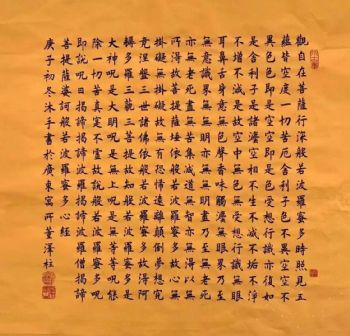 觀自在菩薩行深般若波羅蜜多時照見五
蘊皆空度一切苦厄舍利子色不異空空不
異色色即是空空即是色受想行識亦復如
是舍利子是諸法空相不生不滅不垢不淨
不增不減是故空中無色無受想行識無眼
耳鼻舌身意無色聲香味觸法無眼界乃至
無意識界無無明亦無無明盡乃至無老死
亦無老死盡無苦集滅道無智亦無得以無
所得故菩提薩埵依般若波羅蜜多故心無
掛礙無掛礙故無有恐怖遠離顛倒夢想究
竟涅盤三世諸佛依般若波羅蜜多故得阿
耨多羅三藐三菩提故知般若波羅蜜多是
大神咒是大明咒是無上咒是無等等咒能
除一切苦真實不虛故說般若波羅蜜多咒
即說咒曰揭諦揭諦波羅揭諦波羅僧揭諦
菩提薩婆訶般若波羅蜜多心經
庚子初冬沐手書於廣東寓所董澤柱